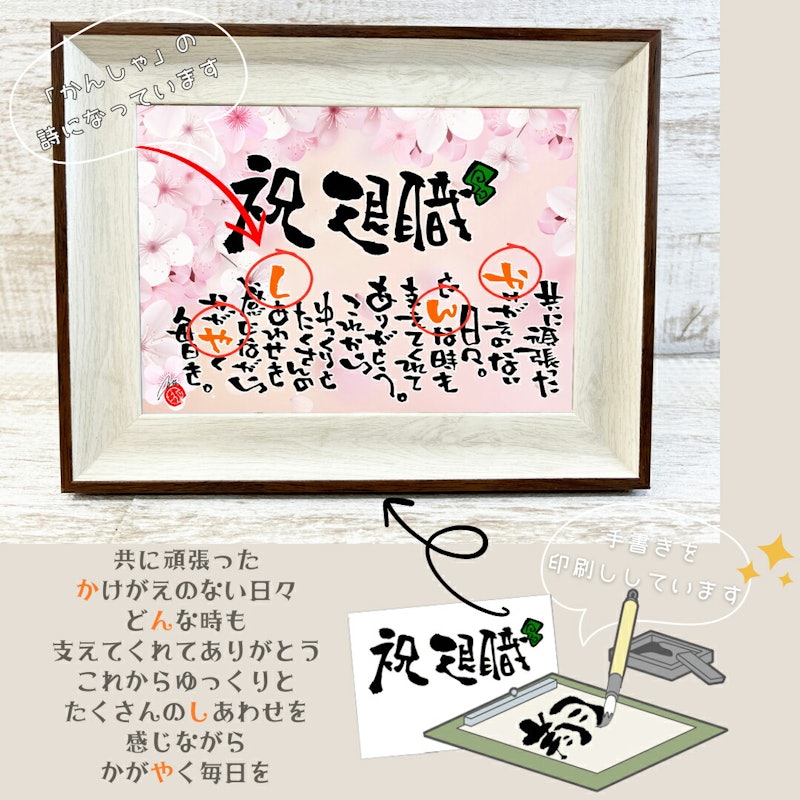 「かんしゃ」の
詩になっています
祝 退職
共に頑張った
かけがえのない
日々。
どんな時も
支えてくれて
ありがとう。
これから
ゆっくりと
たくさんの
しあわせを
感じながら
かがやく
毎日を。
手書きを
印刷ししています
祝 退職
共に頑張った
かけがえのない日々
どんな時も
支えてくれてありがとう
これからゆっくりと
たくさんのしあわせを
感じながら
かがやく毎日を